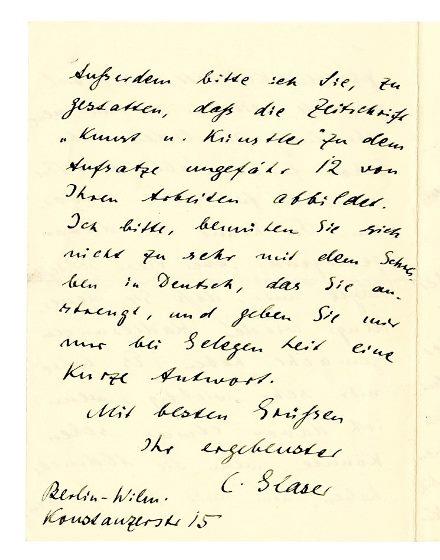 Außerdem bitte ich Sie, zu
gestatten, daß die Zeitschrift
„Kunst u. Künstler" zu dem
Aufsatze ungefähr 12 von
Ihren Arbeiten abbildet.
Ich bitte, bemühen Sie sich
nicht zu sehr mit dem Schrei-
ben in Deutsch, das Sie an-
strengt, und geben Sie mir
nur bei Gelegenheit eine
kurze Antwort.
Mit besten Grüßen
Ihr ergebenster
C. Glaser
Berlin-Wilm.
Konstanzerstr 15